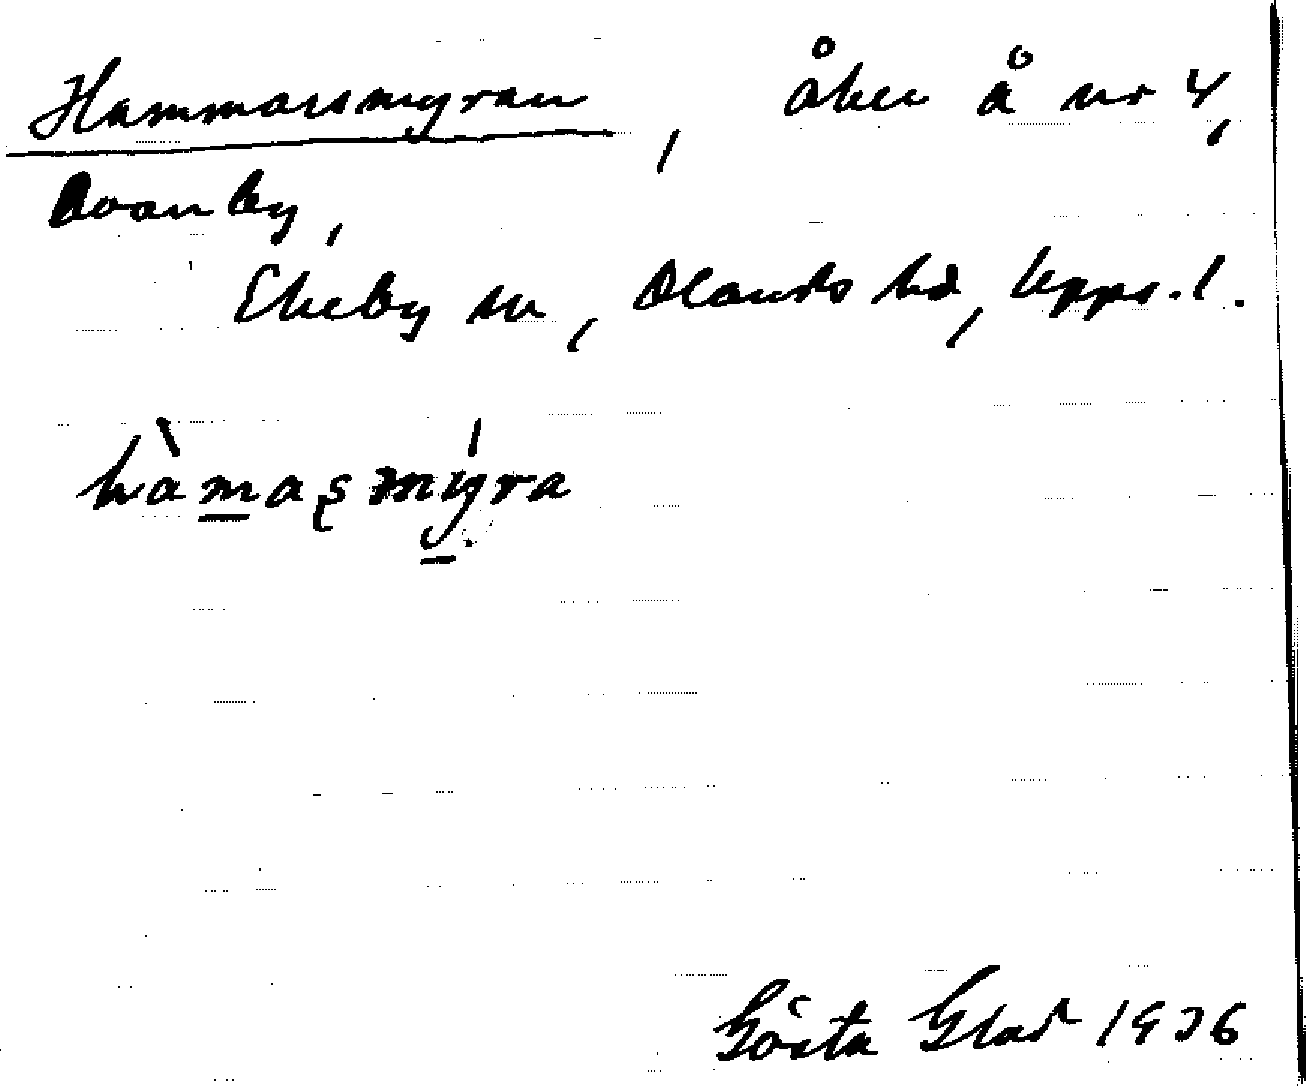 Hammarsmyran, åker å nr 4,
Dvanby,
Ekeby sn, Olands hd, Upps. l.
hàmaʂmýra
Gösta Glad 1936